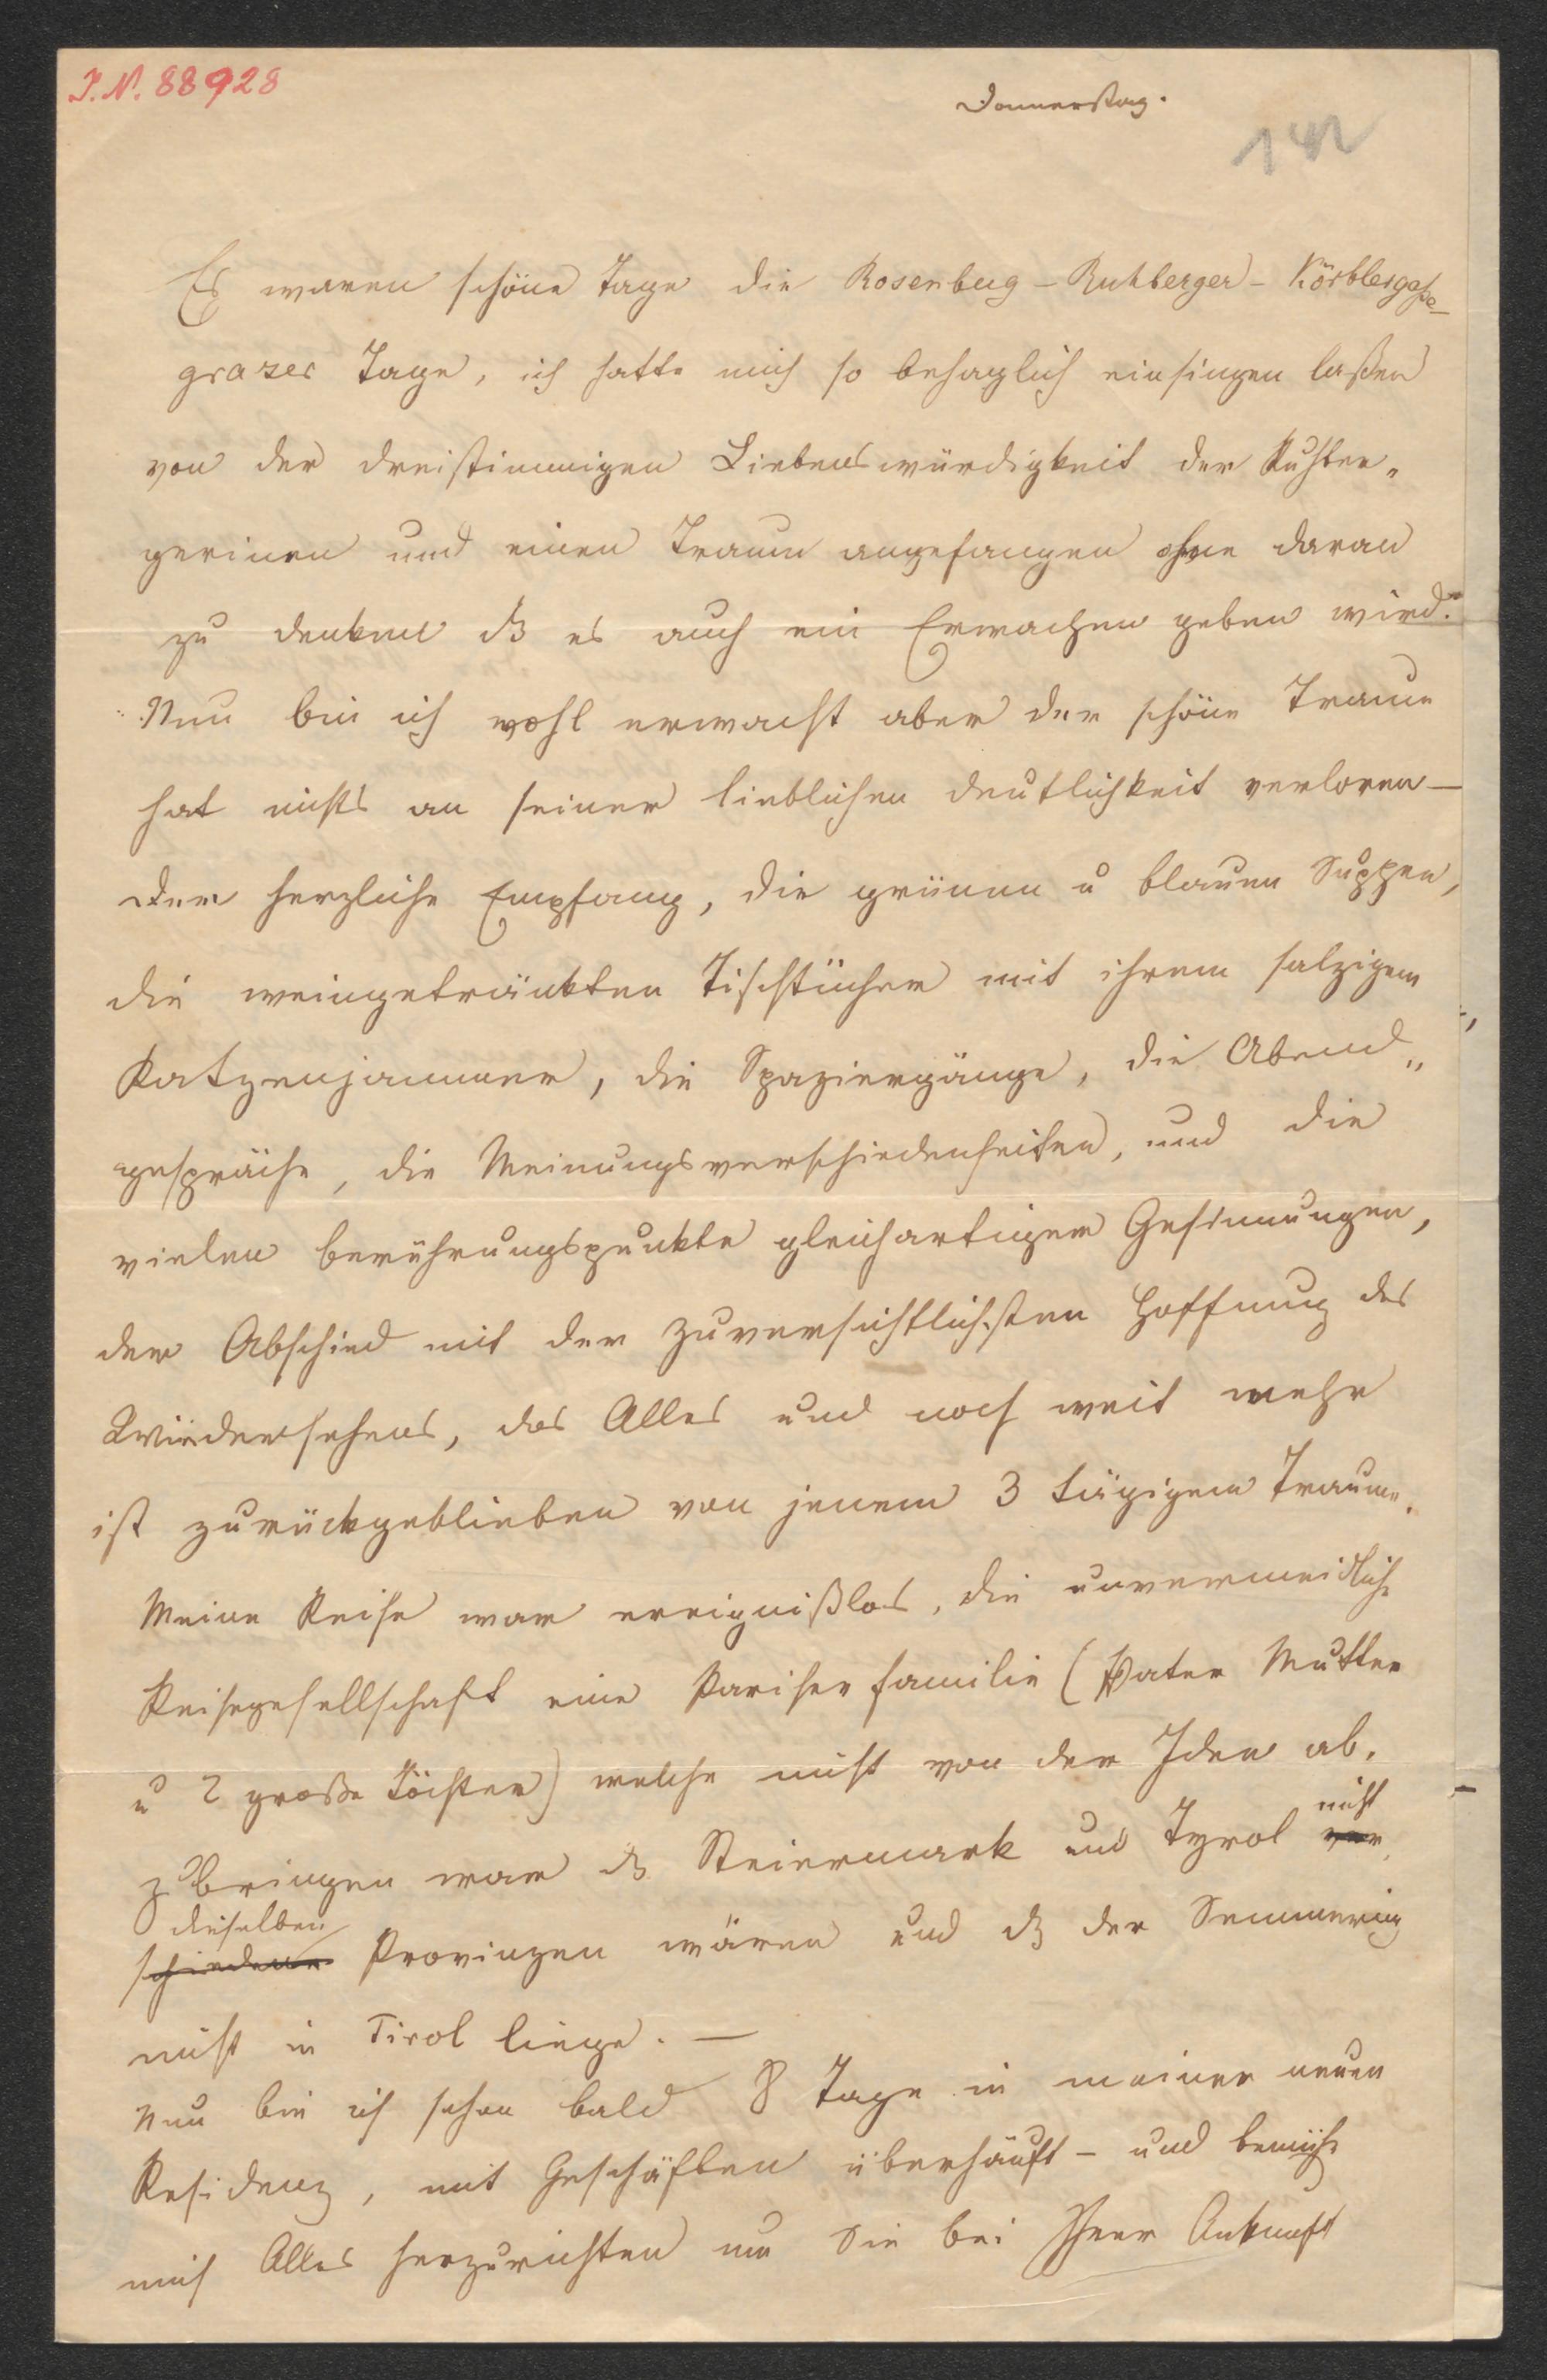 I.N. 88928
Donnerstag.
142
Es waren schöne Tage die Rosenberg-Ruhberger-Körblergaße-
grazer Tage, ich hatte mich so behaglich einsingen laßen
von der dreistimmigen Liebenswürdigkeit der Ruhber„
gerinen und einen Traum angefangen ohne daran
zu denken dß es auch ein Erwachen geben wird.
Nun bin ich wohl erwacht aber der schöne Traum
hat nichts an seiner lieblichen Deutlichkeit verloren—
Der herzliche Empfang, die grünen u blauen Suppen,
die weingetränkten Tischtücher mit ihrem salzigem
Katzenjammer, die Spaziergänge, die Abend„
gespräche, die Meinungsverschiedenheiten, und die
vielen berührungspunkte gleichartiger Gesinnungen,
der Abschied mit der zuversichtlichsten Hoffnung des
Wiedersehens, das Alles und noch weit mehr
ist zurückgeblieben von jenem 3 tägigem Traume.
Meine Reise war ereignißlos, die unvermeidliche
Reisegesellschaft eine Pariser familie (Vater Mutter
u 2 große Töchter) welche nicht von der Idee ab,
zubringen war dß Steiermark und Tyrol nicht ver,
dieselben
schiedene Provinzen wären und dß der Semmering
nicht in Tirol liege. —
Nun bin ich schon bald 8 Tage in meiner neuen
Residenz, mit Geschäften überhäuft – und bemühe
mich Alles herzurichten um Sie bei Ihrer Ankunft